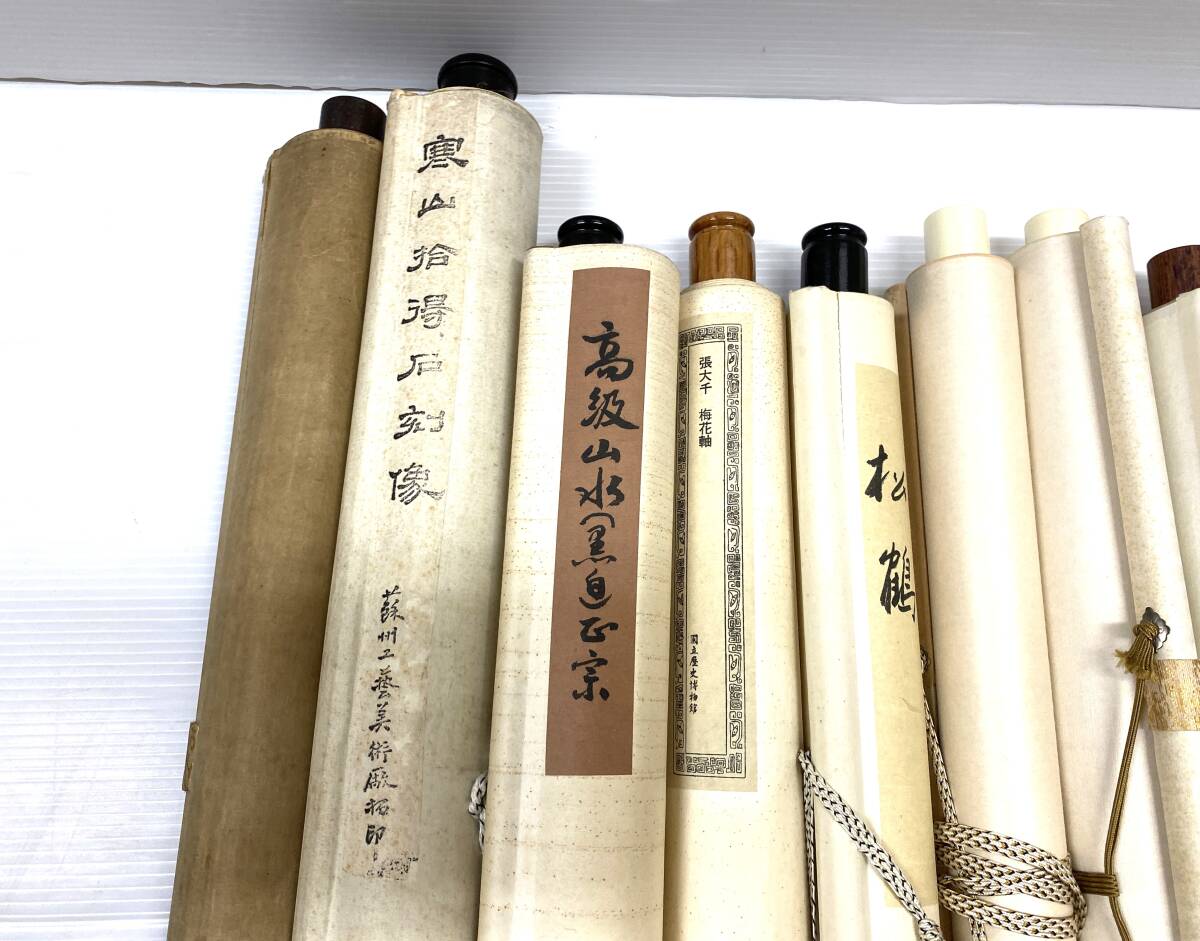 寒山拾得石刻像
蘇州工藝美術厰拓印
高級山水(黒白)正宗
張大千 梅花軸
國立歷史博物館
松鶴